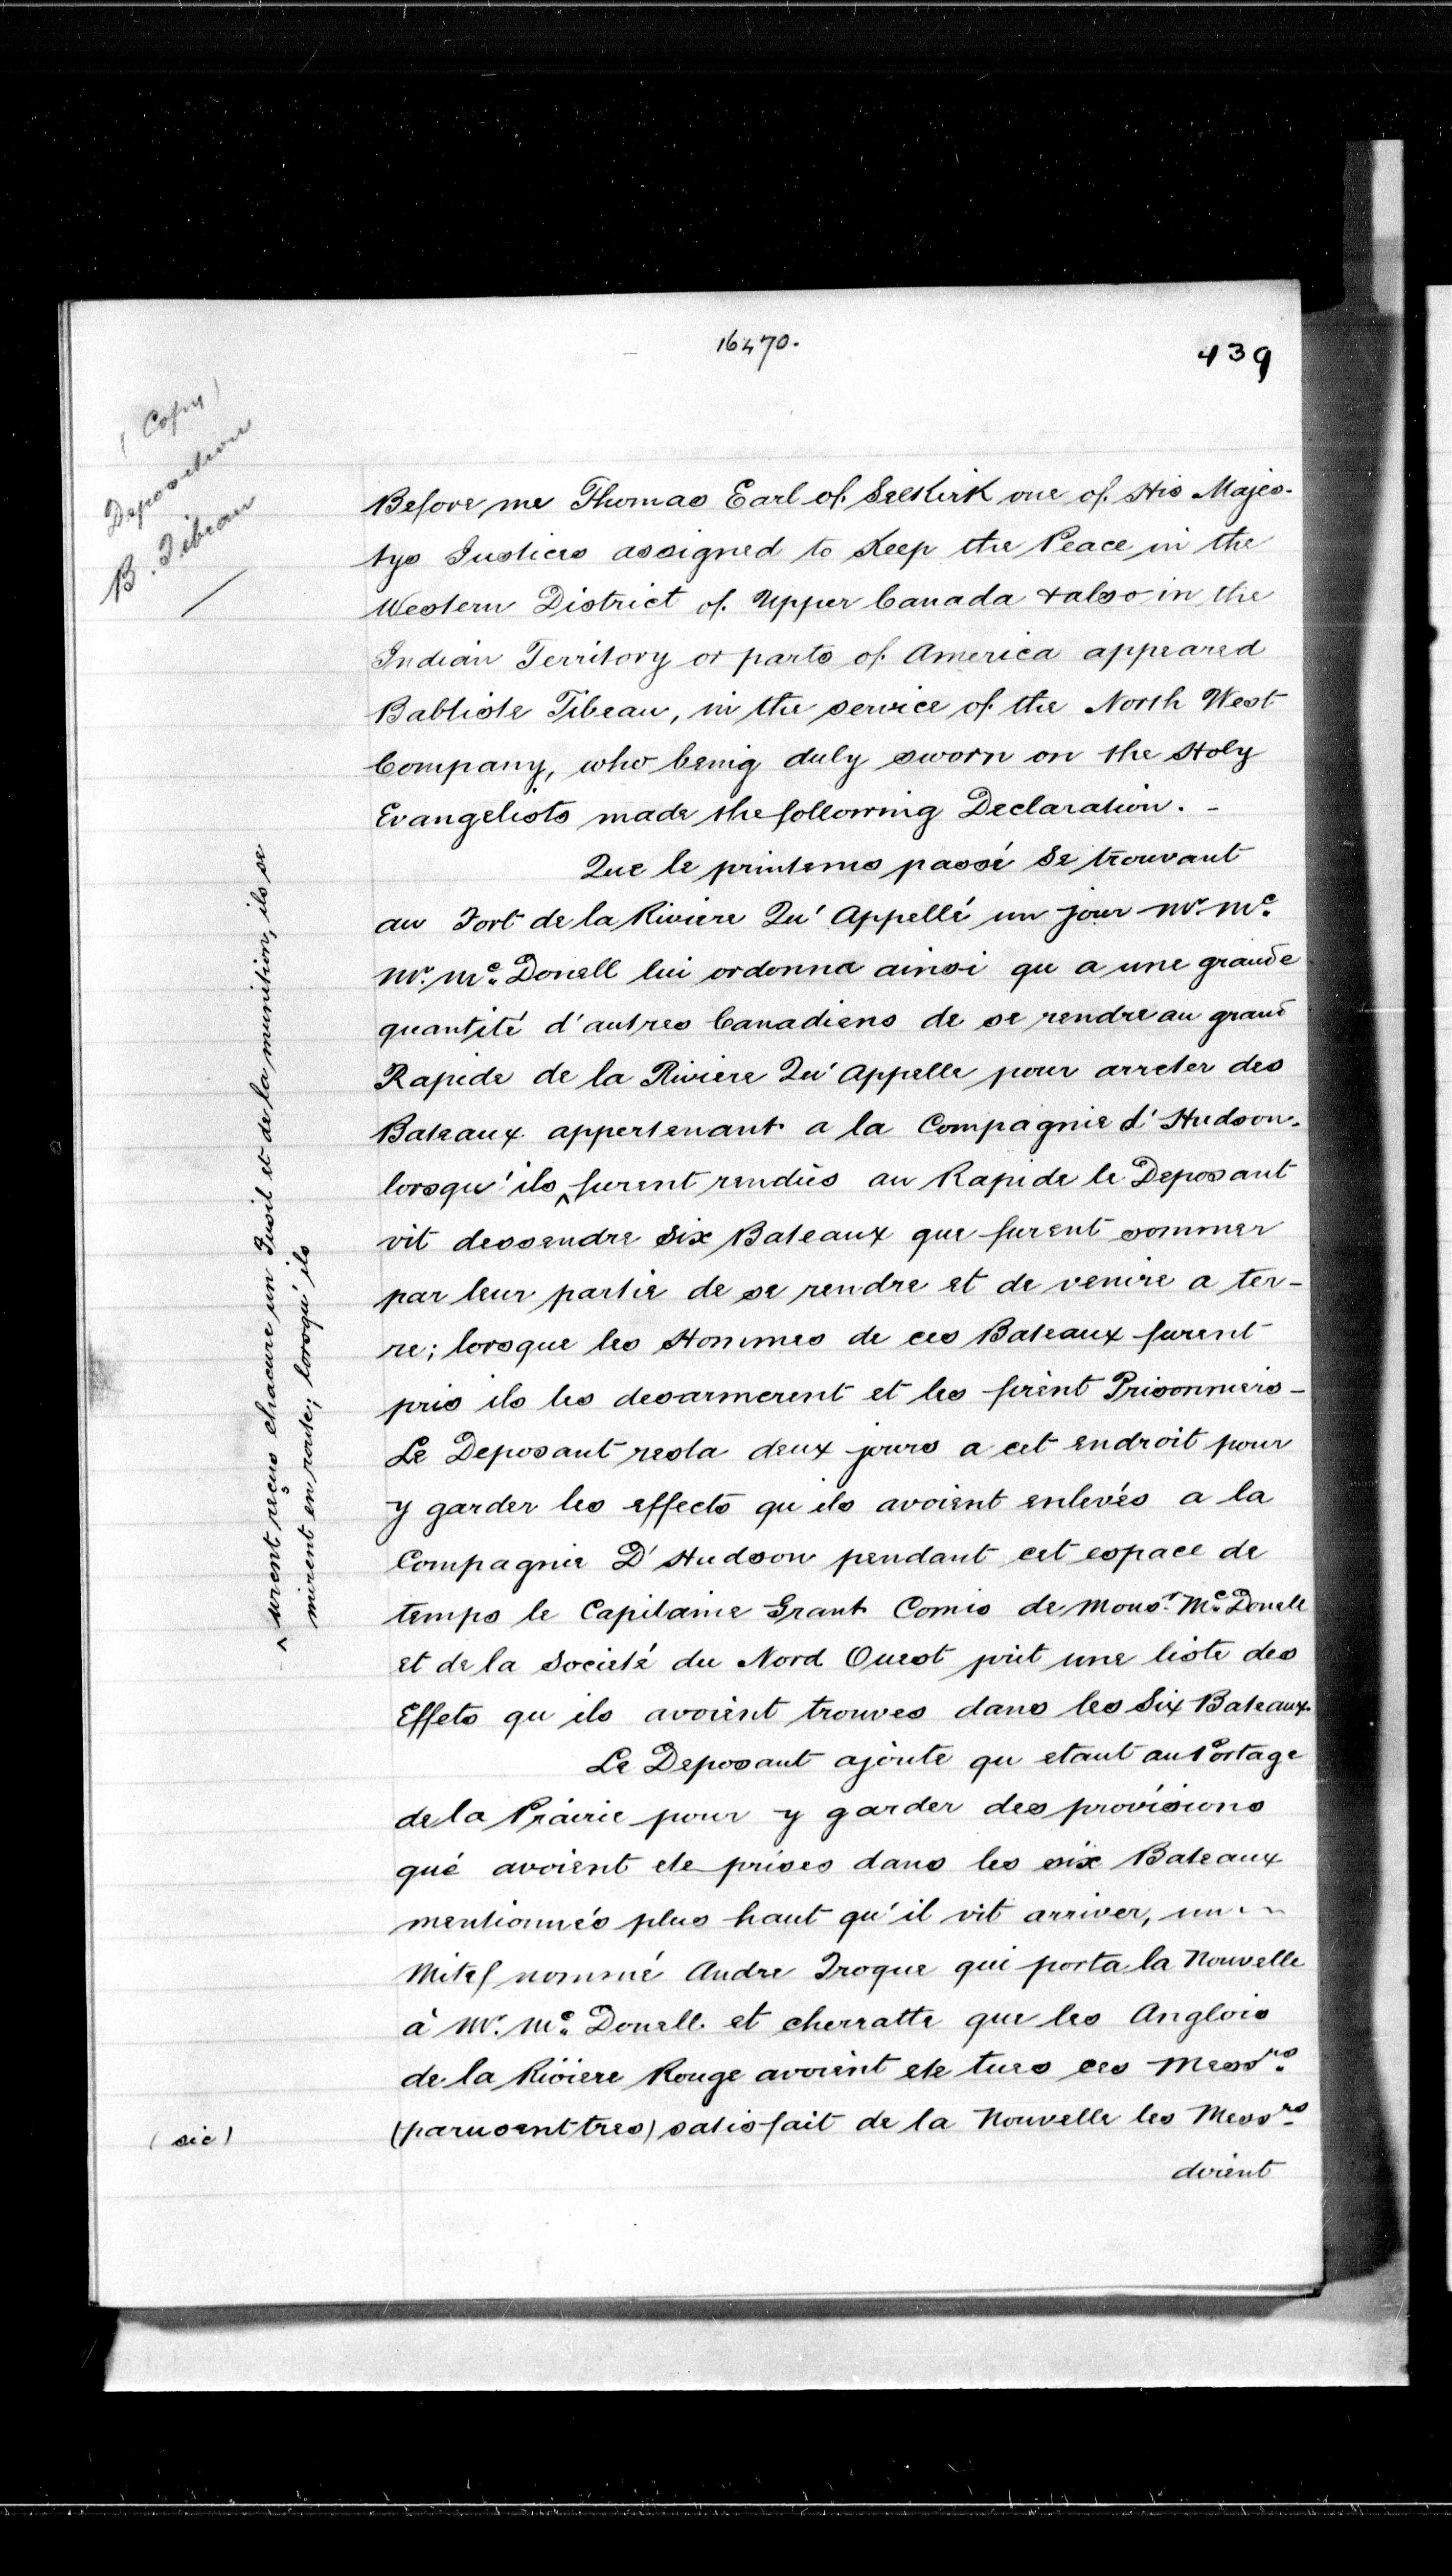 16470.
439
(Copy)
Deposition
B. Tibeau
Before me Thomas Earl of Selkirk one of His Majes-
tys Justices assigned to Keep the Peace in the
Western District of Upper Canada & also in the
Indian Territory or parts of America appeared
Babtiste Tibeau, in the service of the North West
Company, who being duly sworn on the Holy
Evangelists made the following Declaration. -
Que le printems passé se trouvant
au Fort de la Riviere Qu' Appellé un jour Mr. Mc.
Mr. Mc. Donell lui ordonna ainsi qu a une grande
quantité d'autres Canadiens de se rendre au grand
Rapide de la Riviere Qu' Appelle pour arreter des
Bateaux appertenant a la Compagnie d' Hudson.
lorsqu' ils ^ furent rendüs au Rapide le Deposant
vit dessendre Six Bateaux que furent sommer
par leur partie de se rendre et de venire a ter-
re; lorsque les Hommes de ces Bateaux furent
pris ils les desarmerent et les firent Prisonniers -
Le Deposant resta deux jours a cet endroit pour
y garder les effects qu ils avoient enlevés a la
Compagnie D' Hudson pendant cet espace de
temps le Capitaine Grant Comis de Monsr. Mc. Donell
et de la Societé du Nord Ouest prit une liste des
Effets qu ils avoient trouves dans les Six Bateaux.
Le Deposant ajoute qu etant au Portage
de la Prairie pour y garder des provisions
qué avoient ete prises dans les six Bateaux
mentionnés plus haut qu'il vit arriver, un
Mitef nommé Andre Troque qui porta la Nouvelle
à Mr. Mc. Donell et cherratte que les Anglois
de la Riviere Rouge avoient ete tues ces Messrs.
(parusent tres) satisfait de la Nouvelle les Messrs.
doient
^ urent reçus chacure un Fusil et de la munition, ils se
mirent en route; lorsqu' ils
(sic)